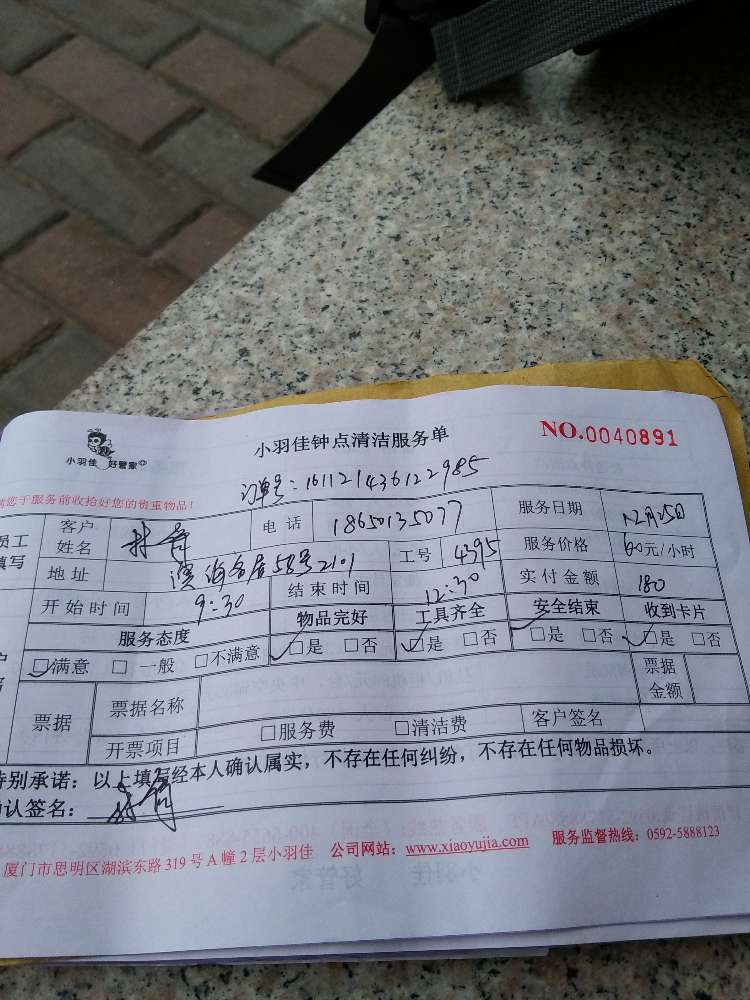 小羽佳 好管家
小羽佳钟点清洁服务单
NO.0040891
订单号:161121436122985
您于服务前收拾好您的贵重物品!
员工 客户姓名 电话 18650135077 服务日期 12月25日
填写 地址 58号2101 工号 4395 服务价格 60元/小时
开始时间 9:30 结束时间 12:30 实付金额 180
服务态度 物品完好 工具齐全 安全结束 收到卡片
☑满意 □一般 □不满意 ☑是 □否 ☑是 □否 ☑是 □否 ☑是 □否
票据 票据名称 票据金额
开票项目 □服务费 □清洁费 客户签名
特别承诺:以上填写经本人确认属实,不存在任何纠纷,不存在任何物品损坏。
确认签名:
厦门市思明区湖滨东路319号A幢2层小羽佳 公司网站:www.xiaoyujia.com 服务监督热线:0592-5888123